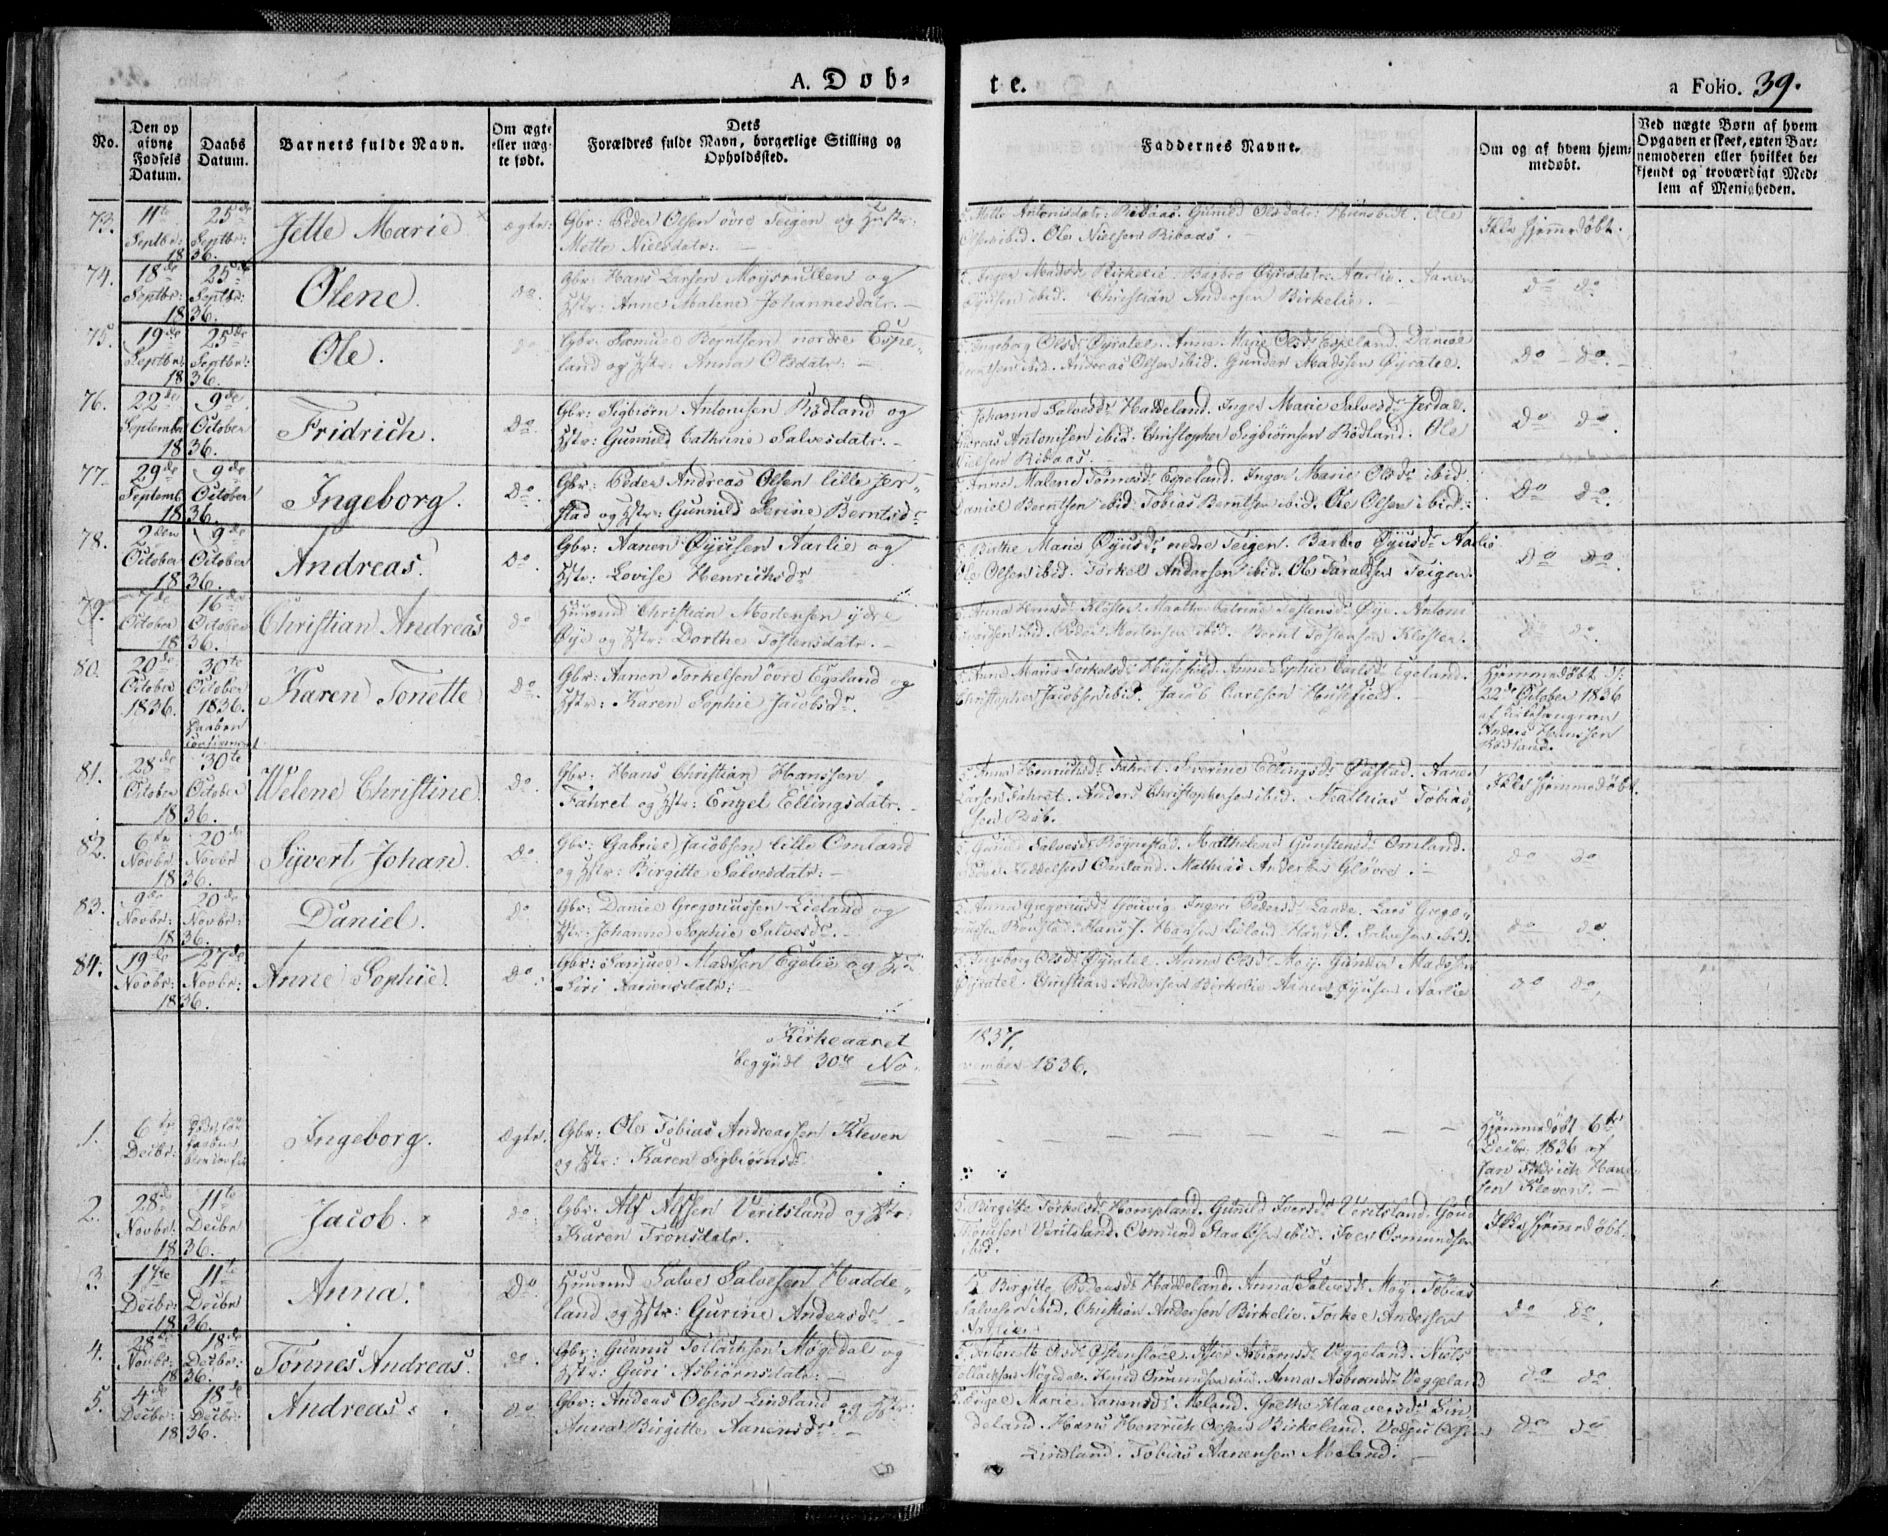 A. Dob-
te.
a Folio. 39.
No.
Den op
givne
Fødsels
Datum.
Daabs
Datum.
Barnets fulde Navn.
Om ægte
eller uæg-
te født.
Dets
Forældres fulde Navn, borgerlige Stilling og
Opholdssted.
Faddernes Navne.
Om og af hvem hjem-
medøbt.
Ved uægte Børn af hvem
Opgaven er skeet, enten Bar-
nemoderen eller hvilket be-
kjendt og troværdigt Med-
lem af Menigheden.
73. 11te Septbr: 1836. 25de Septbr: Jette Marie ægte: Gbr: Peder Olsen övre Teigen og Hustr:
Mette Nielsdatr: —
Mette Antonisdatr: Ribaas. Gunild Olsdatr: Ole
ibid. Ole Nielsen Ribaas. —
Ikke hjemmedöbt.
74. 18de Septbr: 1836. 25de Septbr: Olene. Do. Gbr: Hans Larsen Moijsrullen og
Hstr: Anne Malene Johannesdatr. —
Inger Madsdr Birkelie. Barbro Öyusdatr: Aarlie. Aanen
Öyusen ibid. Christian Andersen Birkelie. —
Do Do
75. 19de Septbr: 1836. 25de Septbr: Ole. Do Gbr: Samuel Berntsen nordre Espe-
land og Hstr: Anna Olsdatr: —
Ingeborg Olsdr Öyratel. Anne Marie Olsdr Espeland. Daniel
Berntsen ibid. Andreas Olsen ibid. Gunder Madssen Öyratel.
Do — Do. —
76. 22de September 1836. 9de October Fridrich. Do. Gbr: Sigbiörn Antonisen Rödland og
Hstr: Gunnild Cathrine Salvesdatr. —
Johanne Salvesdr Haddeland. Inger Marie Salvesdr Jerdal.
Andreas Antonisen ibid. Christopher Sigbiörnsen Rödland. Ole
Nielsen Ribaas. —
Do Do.
77. 29de Septemb. 1836. 9de October Ingeborg. Do. Gbr: Peder Andreas Olsen lille Jer-
stad og Hstr: Gunnild Serine Berntsdr
Anne Malene Tönnesdr Espeland. Inger Marie Olsdr ibid.
Daniel Berntsen ibid. Tobias Berntsen ibid. Ole Olsen ibid.
Do Do.
78. 2den October 1836. 9de October Andreas. Do. Gbr: Aanen Öyusen Aarlie og
Hstr: Lovise Henrichsdr
Birthe Marie Öyusdr nedre Teigen. Barbro Öyusdr Aarlie
Ole Olsen ibid. Torkel Andersen ibid. Ole Taraldsen Teigen.
Do Do.
79. 7de October 1836. 16de October Christian Andreas Do Huusmd Christian Mortensen ydre
Öye og Hstr: Dorthe Tostensdatr. —
Anna Kloster. Marthe Catrine Tostensdr Öye. Antoni
ibid. Peder Mortensen ibid. Bernt Tostensen Kloster.
Do Do.
80. 20de October 1836. 30te October 1836. Daaben
confirmeret
Karen Tonette Do. Gbr: Aanen Torkelsen övre Egeland og
Hstr: Karen Sophie Jacobsdr.
Anne Marie Torkelsdr Huusfield. Anne Sophie Carlsdr Egeland.
Christopher Jacobsen ibid. Jacob Carlsen Huusfield. —
Hjemmedöbt d:
22de October 1836
af Kirkesangeren
Anders Hanssen
Rödland.
81. 28de October 1836. 30te October Welene Christine Do. Gbr: Hans Christian Hanssen
Fahret og Hstr: Engel Ellingsdatr. —
Anna Henrichsdr Fahret. Severine Ellingsdr Öistad. Aanen
Larsen Fahret. Anders Christophersen ibid. Mathias Tobias-
sen Röb.
Ikke hjemmedöbt.
82. 6te Novbr 1836. 20de Novbr Syvert Johan. Do. Gbr: Gabriel Jacobsen lille Omland
og Hstr: Birgitte Salvesdatr: —
Gunild Salvesdr Röynestad. Malthelene Gunstensdr Omland.
Peder Keddelsen Omland. Mathias Andersen Glövre. —
Do Do
83. 9de Novbr: 1836. 20de Novbr: Daniel. Do Gbr: Daniel Gregoriussen Lieland og
Hstr: Johanne Sophie Salvesdr. —
Anna Gregoriusdr Gouvig. Ingeri Pedersdr Lande. Lars Grego-
riussen Hans J. Hansen Lieland. Hans S. Salvesen ibid.
Do — Do.
84. 19de Novbr: 1836. 27de Novbr: Anne Sophie. Do. Gbr: Samuel Madssen Egelie og Hstr
Siri Aanensdatr: —
Ingeborg Olsdr Öyratel. Anna Olsdr Moy. Gunder Madssen
Öyratel. Christian Andersen Birkelie. Aanen Öyusen Aarlie
Do Do.
Kirkeaaret 1837,
begyndt 30de November 1836.
1. 6te Decbr: Döde för
Daaben
Ingeborg. Ægte. Gbr: Ole Tobias Andreassen Kleven
og Hstr: Karen Sigbiörnsdr
— — — — — — —
Hjemmedöbt 6te
Decbr: 1836 af
Jan Fridrich Han-
sen Kleven. —
2. 28de Novbr: 1836. 11te Decbr Jacob. Do. Gbr: Alf Alfsen Veritsland og Hstr:
Karen Tronsdatr.
Birgitte Torkelsdr Hompland. Gunild Iversdr Veritsland.
Veritsland. Osmund ibid. Iver Osmundsen
ibid.
Ikke hjemmedöbt.
3. 1ste Decbr: 1836. 11te Decbr Anna. Do. Huusmd Salve Salvesen Hadde-
land og Hstr: Gurine Andersdr —
Birgitte Haddeland. Anna Salvesdr Moy. Tobias
Salvesen ibid. Christian Andersen Birkelie. Torkel Andersen
Aarlie.
Do Do.
4. 28de Novbr: 1836. 18de Decbr: Tönnes Andreas. Do. Gbr: Gunnu Tollachsen Mögedal og
Hstr: Guri Asbiörnsdatr: —
Anbreth Olsdr Östenslöe. Asbiörnsdr Veggeland. Niels
Tollachsen Mögedal. Knud Gunnusen ibid. Anna Asbiörnsdr Veggeland
Do Do.
5. 4de Decbr: 1836. 18de Decbr: Andreas. Do. Gbr: Anders Olsen Lindland og Hstr:
Anna Birgitte Aanensdr. —
Engel Marie Aanensdr Meland. Grethe Haaversdr Lin-
deland. Hans Henrich Olsen Birkeland. Olsen
Lindland. Tobias Aanensen Meland. —
Do Do